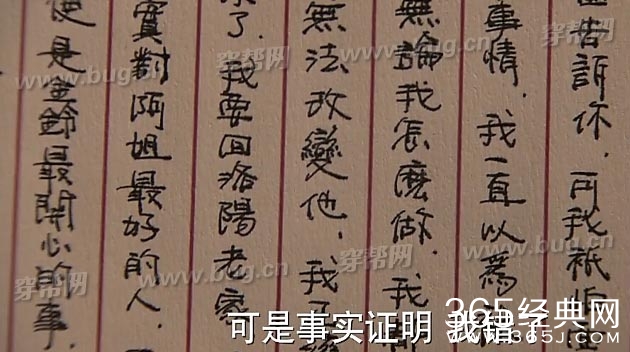 告訴你，可我祇
事情，我一直以為
無論我怎麼做，我
無法改變他，我
了，我要回洛陽老家
實對阿姐最好的人，
便是金鈴最開心的事，
可是事实证明 我错了
穿帮网
www.bug.cn
穿帮网
www.bug.cn
穿帮网
www.bug.cn
365经典网
WWW.365J.COM